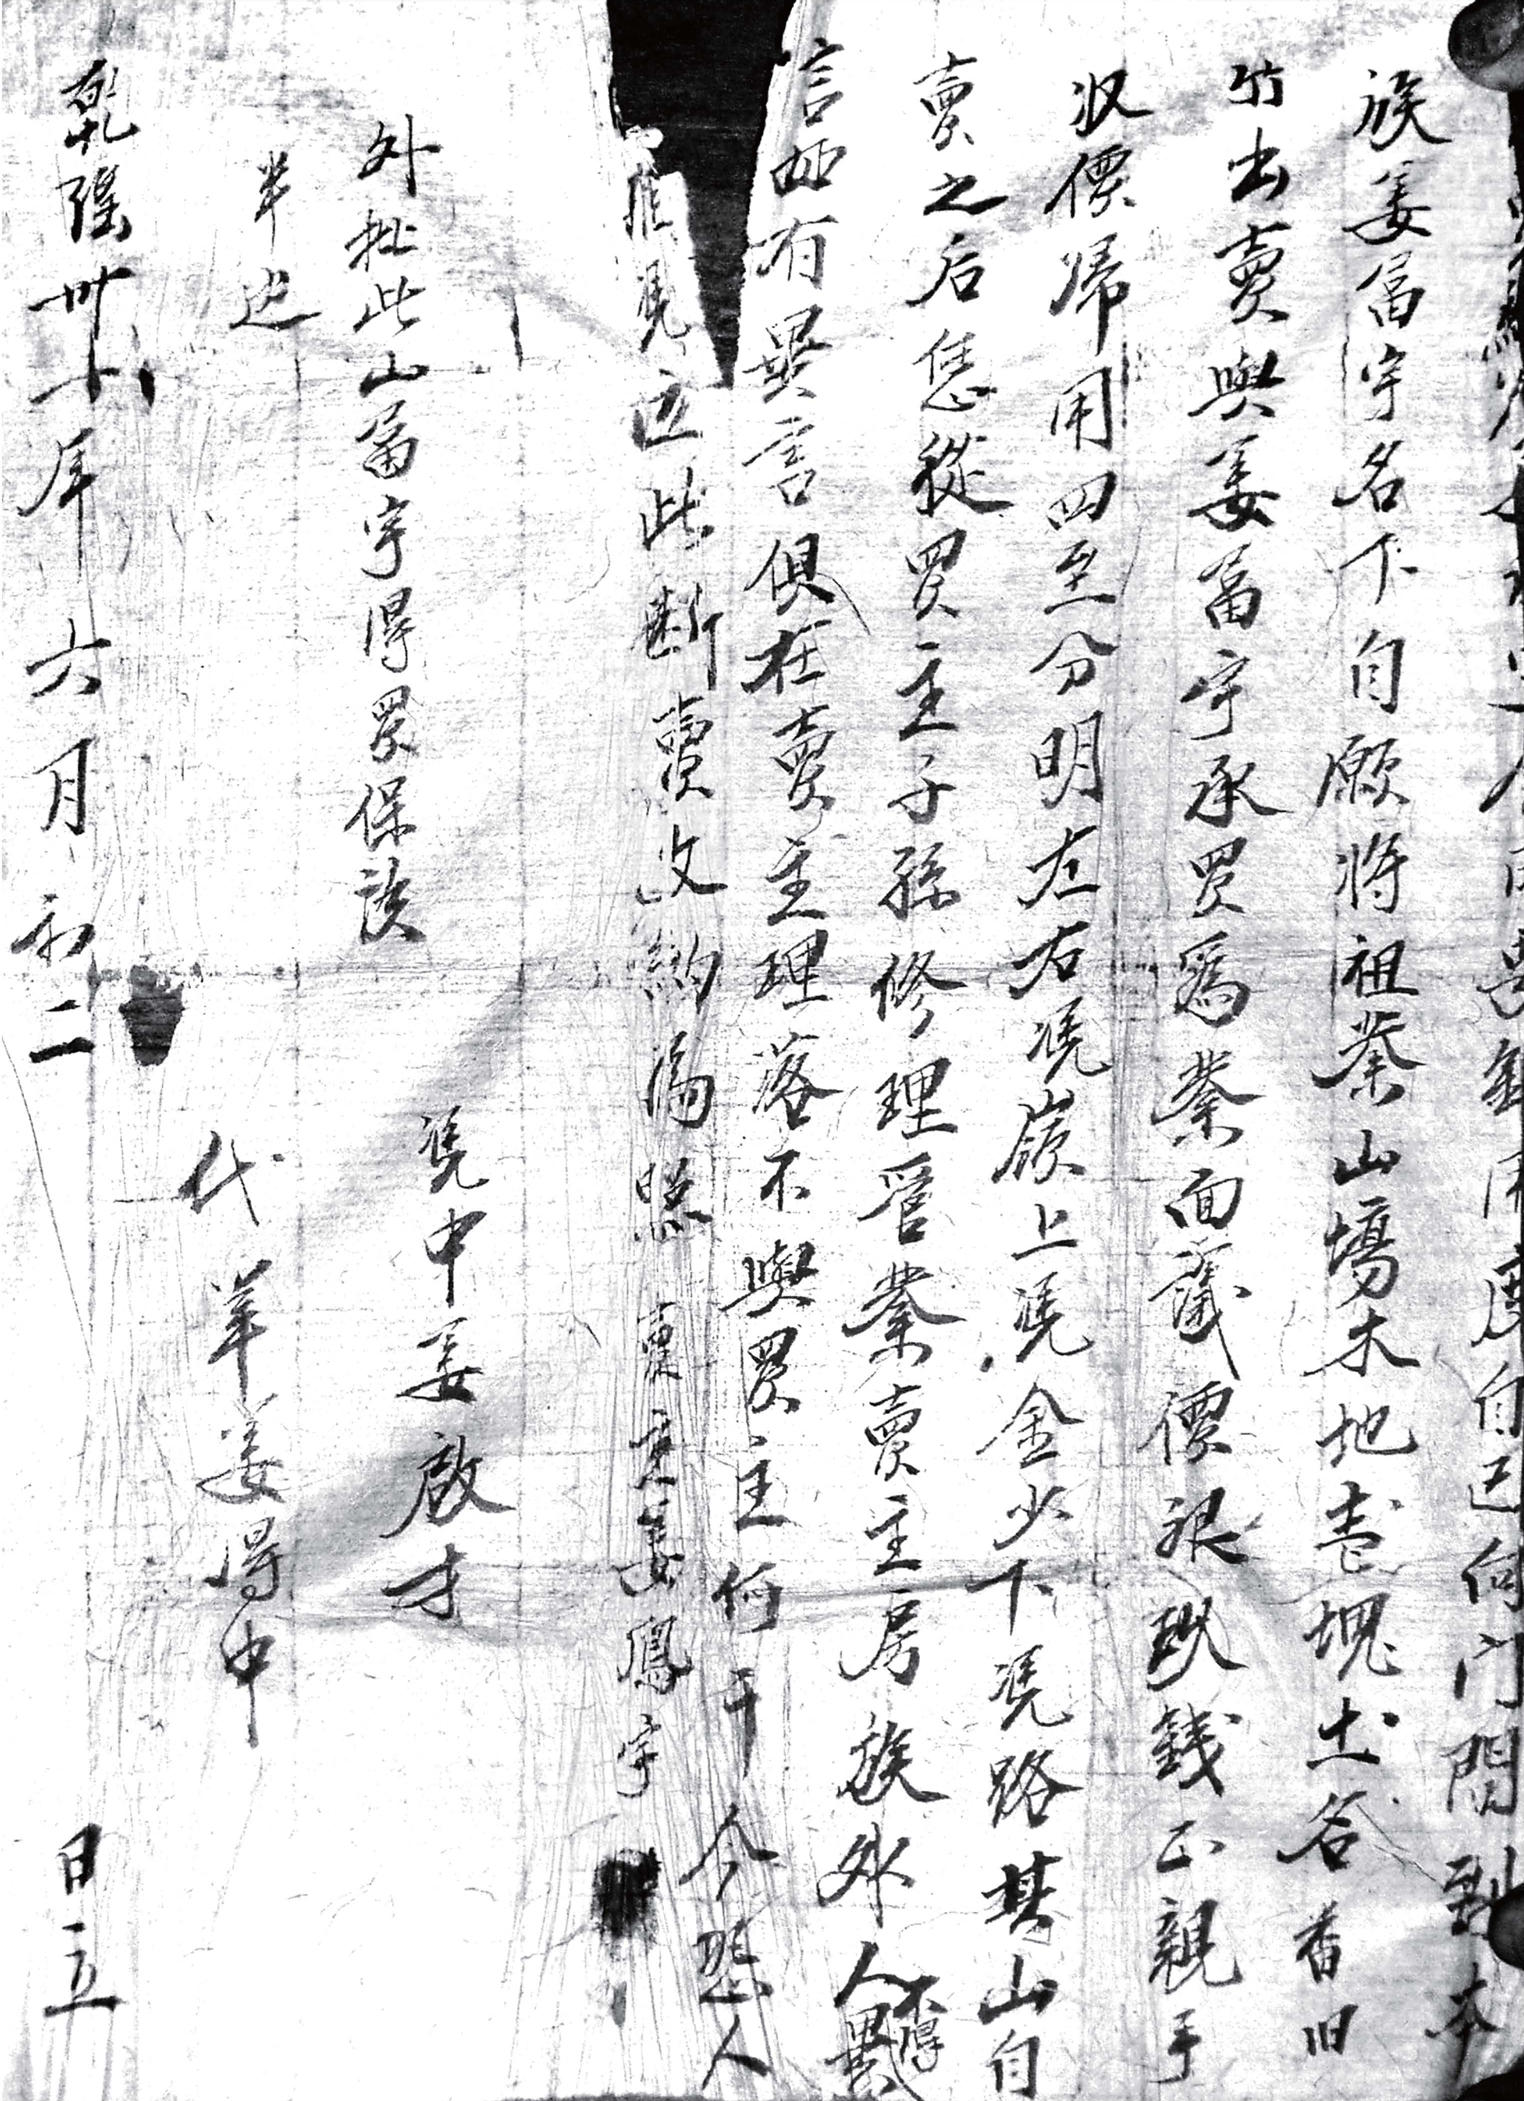 缺少 用度自己向門問到本
族姜富宇名下自愿將祖業山塲木地壹塊土名香旧
竹出賣與姜富宇承買爲業面議價銀玖錢正親手
收價歸用四至分明左右凴嶺上凴金少下凴路其山自
賣之后恁從買主子孫修理管業賣主房族外人不得異
言如有異言俱在賣主理落不與買主何干今恐人
凴立此斷賣文約為照 賣主姜鳳宇
外批此山富宇得買保該
半边
凴中姜啟才
代筆姜得中
乾隆卅 年六月初二日立